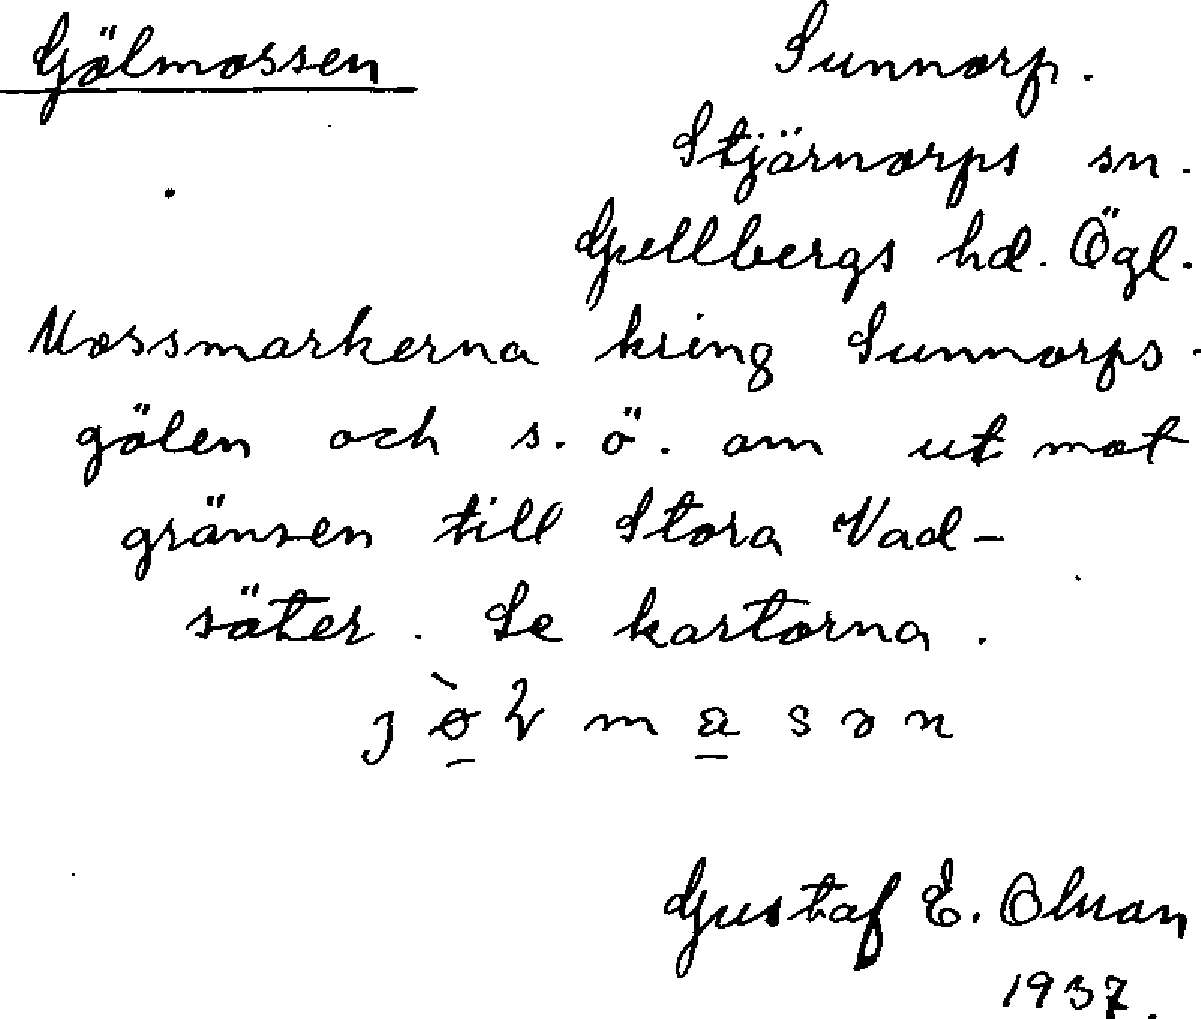 Gölmossen
Sunnorp.
Stjärnorps sn.
Gullbergs hd. Ögl.
Mossmarkerna kring Sunnorps-
gölen och s. ö. om ut mot
gränsen till Stora Vad-
säter. Se kartorna.
Gustaf E. Olsson
1937.